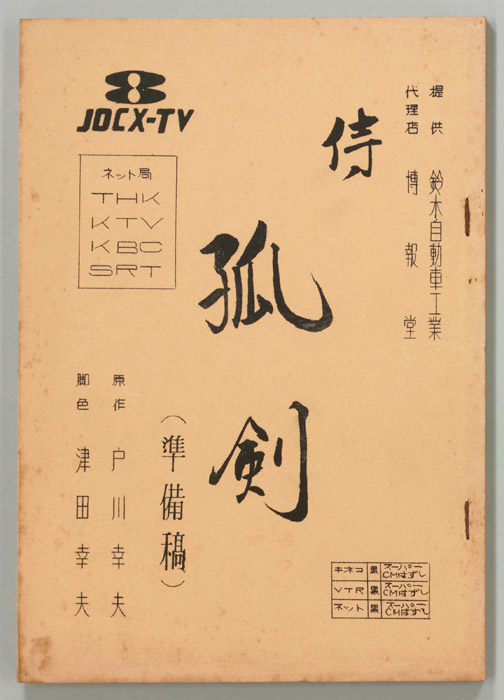 提供 鈴木自動車工業
代理店 博報堂
侍
孤剣
（準備稿）
原作 戸川幸夫
脚色 津田幸夫
JOCX-TV
ネット局
THK
KTV
KBC
SRT
キネコ 黒 スーパー CMはずし
VTR 黒 スーパー CMはずし
ネット 黒 スーパー CMはずし